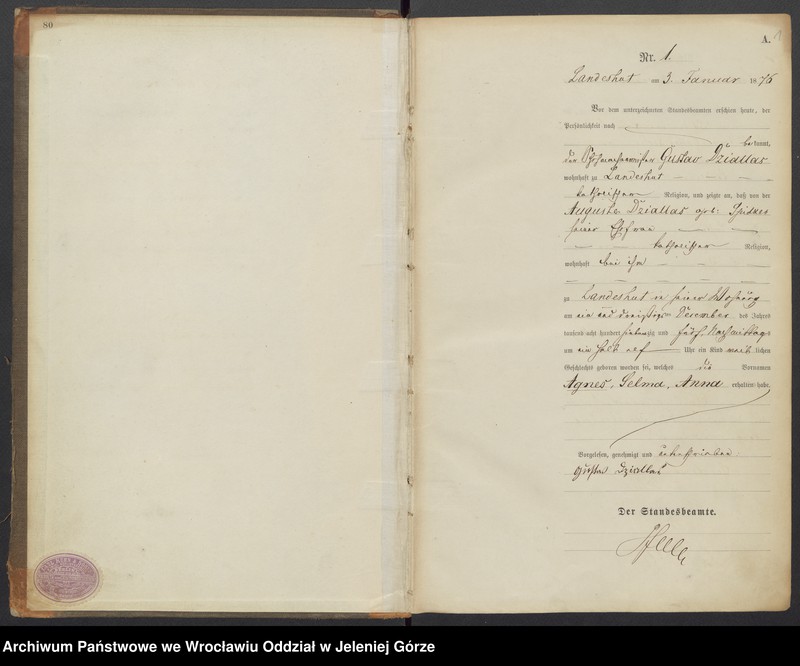 80
A. 1
Nr. 1.
Landeshut am 3. Januar 1876
Vor dem unterzeichneten Standesbeamten erschien heute, der
Persönlichkeit nach
bekannt,
der Gustav Dziallas
wohnhaft zu Landeshut
katholischer Religion, und zeigte an, daß von der
Auguste Dziallas geb:
seiner Ehefrau
katholischer Religion,
wohnhaft bei ihm
zu Landeshut in seiner Wohnung
am ein und dreißigsten December des Jahres
tausend acht hundert siebenzig und fünf, Nachmittags
um ein halb elf Uhr ein Kind weiblichen
Geschlechts geboren worden sei, welches die Vornamen
Agnes, Selma, Anna erhalten habe.
Vorgelesen, genehmigt und unterschrieben
Gustav Dziallas
Der Standesbeamte.
Archiwum Państwowe we Wrocławiu Oddział w Jeleniej Górze